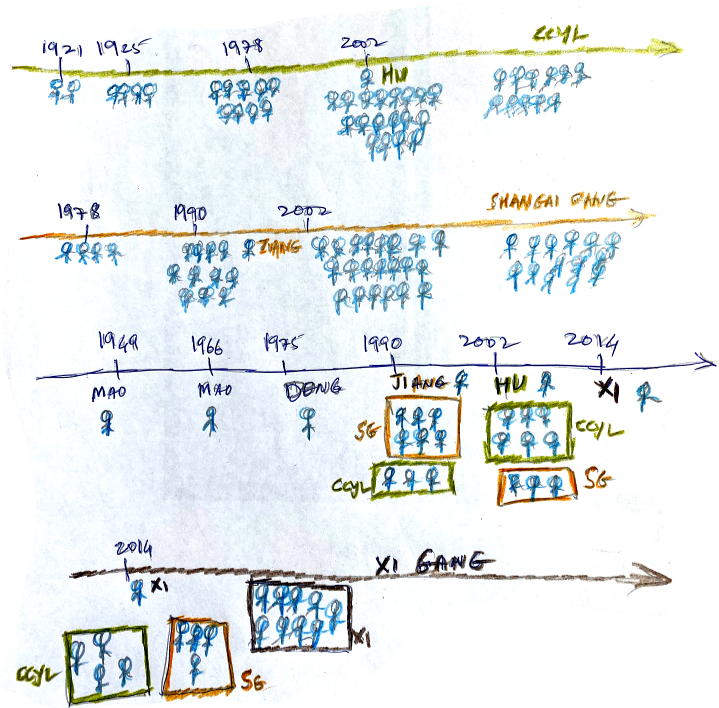 1921 1925 1978 2002 CCYL
HU
1978 1990 2002 SHANGAI GANG
ZIANG
1949 1966 1975 1990 2002 2014
MAO MAO DENG JIANG HU XI
SG CCYL
CCYL SG
2014 XI GANG
XI
XI
CCYL SG